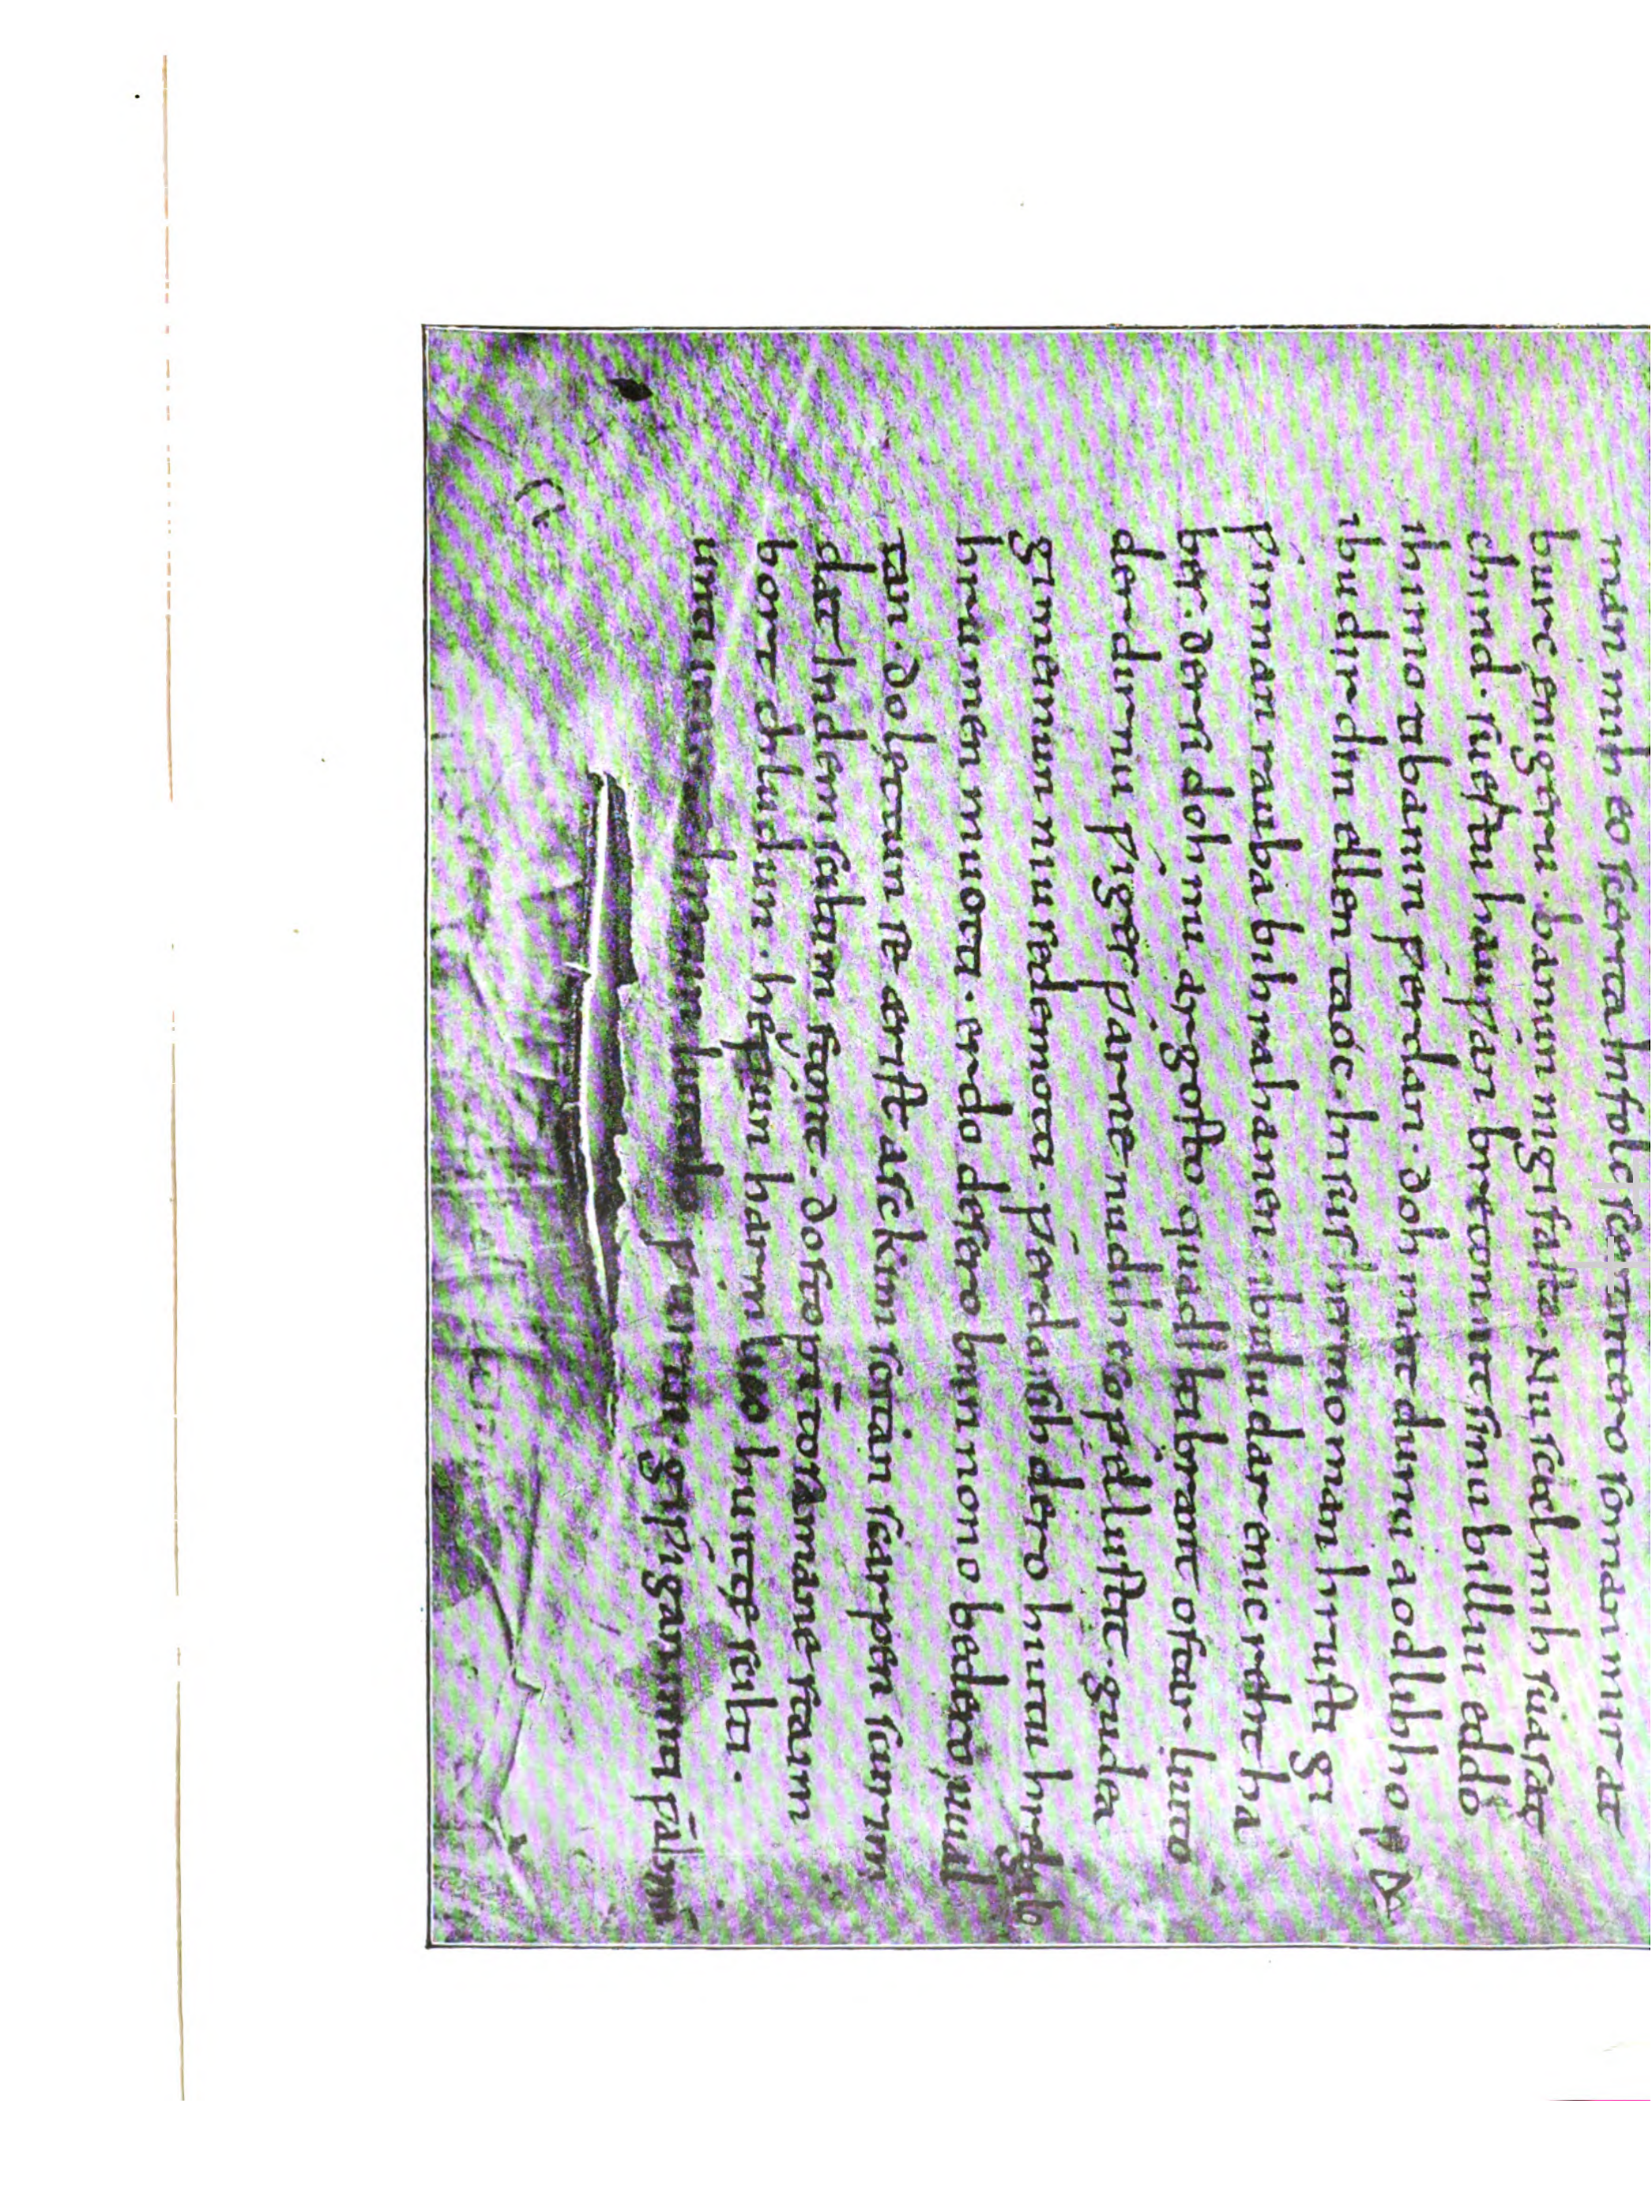 man mih eo scerita Infolc sceotantero so man mir at
burc enigeru. banun nigifasta. Nu scal mih suasat
chind. suertu hauƿan bretonmit sinu billiu eddo
ih imo tibanin ƿerdan. doh maht du nu aodlihho
ibu dir din ellen taoc. Insus heremo man hrusti gi
ƿinnan rauba bihrahanen. ibu du dar enic reht ha
bes. der si doh nu argosto quad hiltibrant ostar liuto
der dir nu ƿiges ƿarne nu dih es so ƿel lustit. gudea
gimeinun niuse de motti. ƿerdar sih dero hiutu hregilo
hrumen muotti. erdo desero brunnono bedero uual
tan. do lettun se ærist asckim scritan scarpen scurim
dat In dem sciltim stont. do stoptun to samane staim
bort chludun. heƿun harmlicco huitte scilti.
unti im iro lintun luttilo ƿurtun giƿigan miti ƿabnum